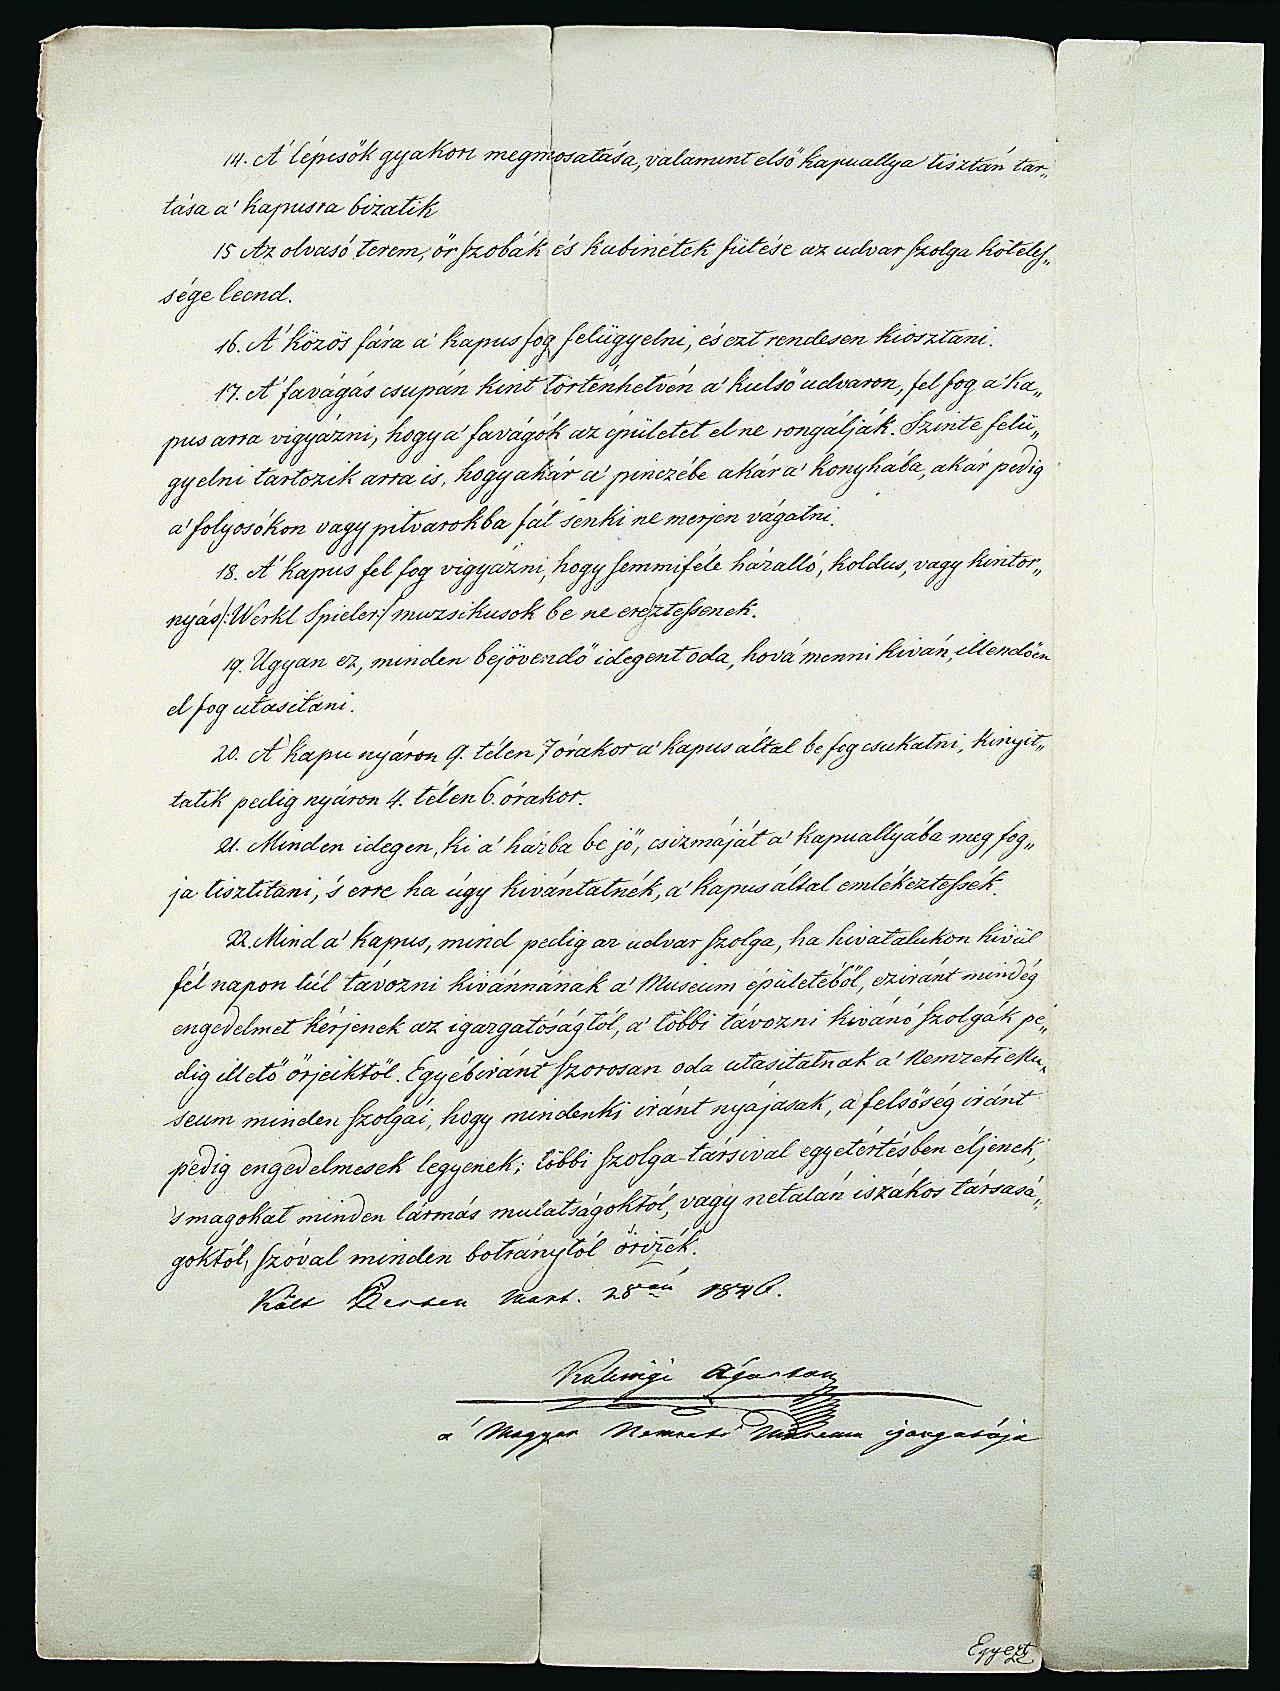 14. A' lépcsők gyakori megmosatása, valamint első kapuallya tisztán tar„
tása a' kapusra bizatik
15 Az olvasó terem, őr szobák és kabinétek fütése az udvar szolga köteles„
sége leend.
16. A' közös fára a' kapus fog felügyelni, és ezt rendesen kiosztani.
17. A' favágás csupán kint történhetvén a' külső udvaron, fel fog a' ka„
pus arra vigyázni, hogy a' favágók az épületet el ne rongálják. Szinte felü„
gyelni tartozik arra is, hogy akár a' pinczébe akár a' konyhába, akár pedig
a' folyosókon vagy pitvarokba fát senki ne merjen vágatni.
18. A' kapus fel fog vigyázni, hogy semmiféle házalló, koldus, vagy kintor„
nyás /: Werkl Spieler :/ muzsikusok be ne eresztessenek.
19. Ugyan ez, minden bejövendő idegent oda, hová menni kiván, illendően
el fog utasitani.
20. A' kapu nyáron 9. télen 7 órakor a' kapus által be fog csukatni, kinyit„
tatik pedig nyáron 4. télen 6. órakor.
21. Minden idegen, ki a' házba be jő, csizmáját a' kapuallyába meg fog„
ja tisztitani, 's erre ha úgy kivántatnék, a' kapus által emlékeztessék.
22. Mind a' kapus, mind pedig az udvar szolga, ha hivatalukon kivül
fél napon túl távozni kivánnának a' Museum épületéből, eziránt mindég
engedelmet kérjenek az igazgatóságtól, a' többi távozni kivánó szolgák pe„
dig illető őrjeiktől. Egyébiránt szorosan oda utasitatnak a' Nemzeti Mu„
seum minden szolgái, hogy mindenki iránt nyájasak, a' felsőség iránt
pedig engedelmesek legyenek; többi szolga-társival egyetértésben éljenek,
's magokat minden lármás mulatságoktól, vagy netalán iszákos társasá„
goktól, szóval minden botránytól őrizék.
Költ Pesten Mart. 28án 1846.
Kubinyi Ágoston
a' Magyar Nemzeti Museum igazgatója